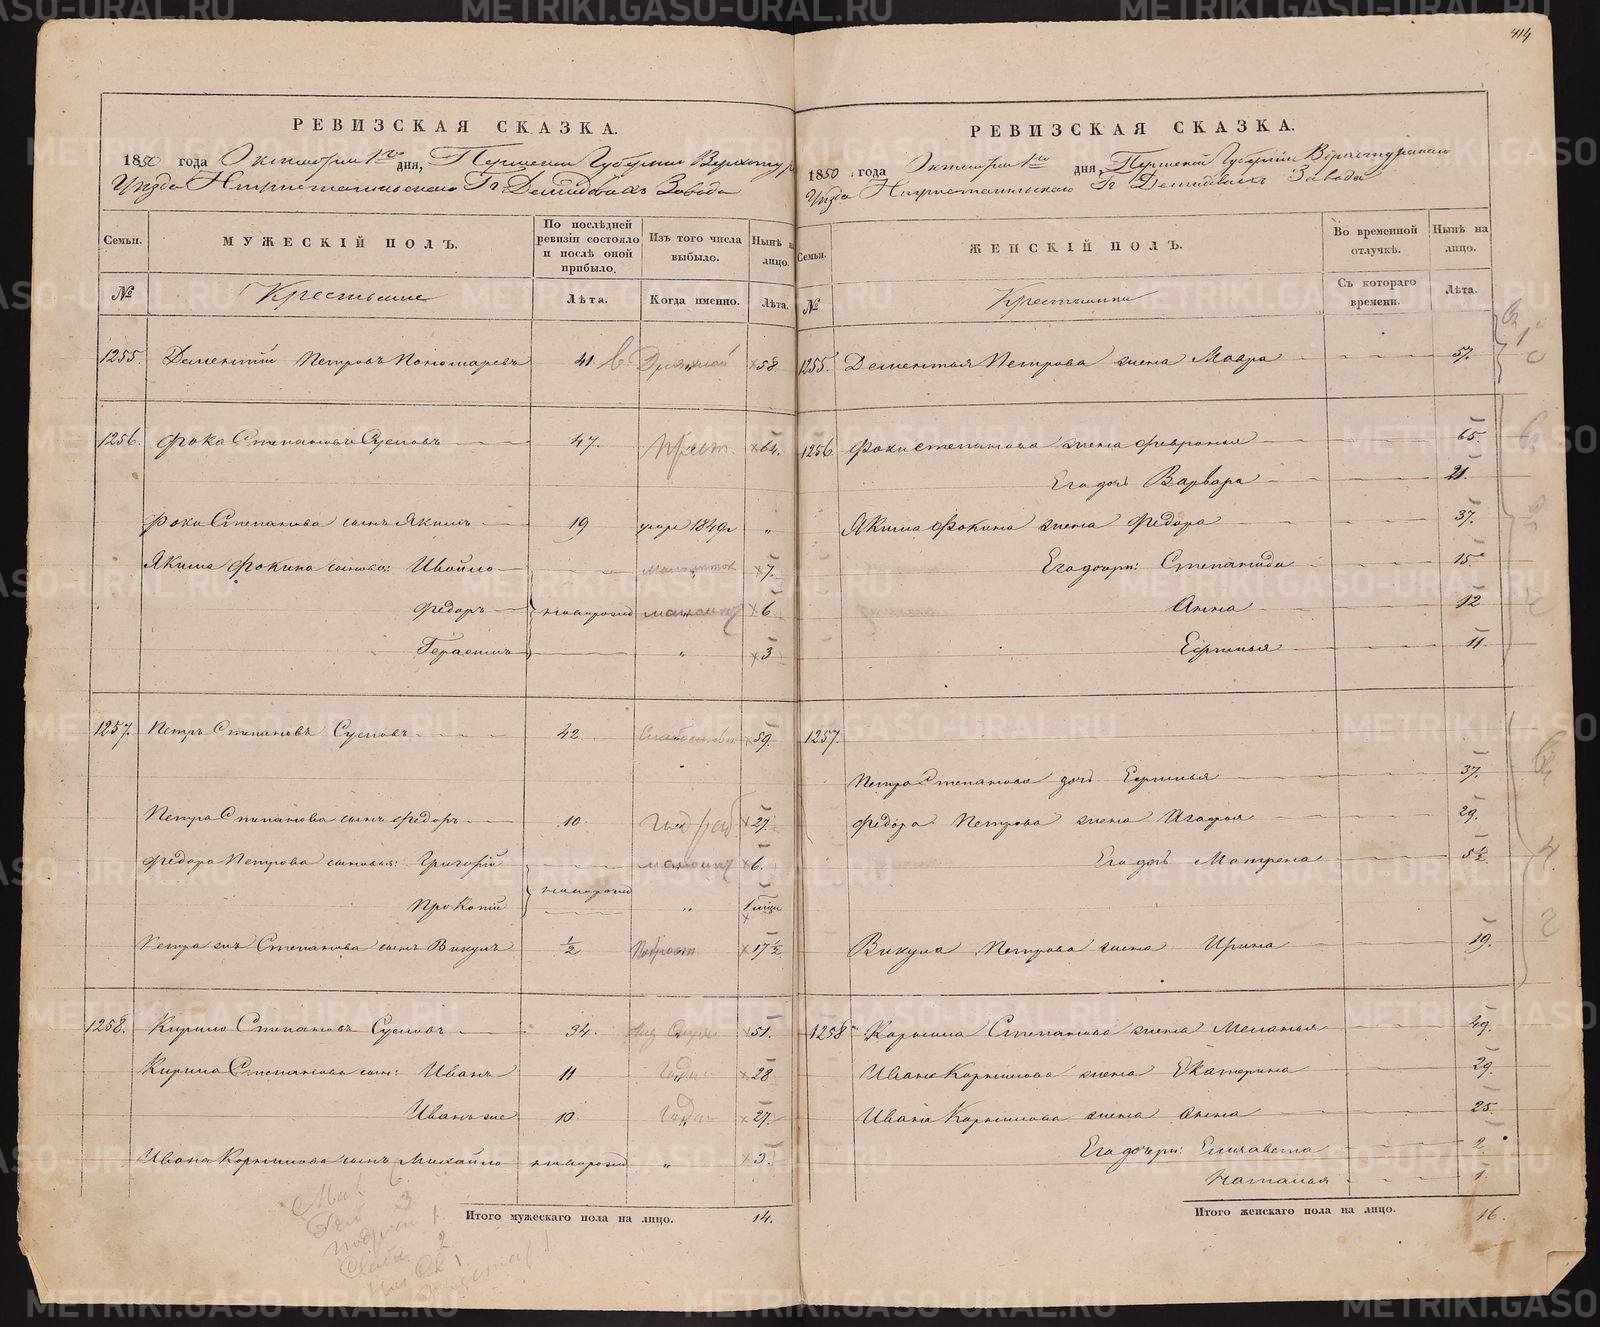 414
РЕВИЗСКАЯ СКАЗКА.
1850 года Октября 1го дня, Пермской Губернии Верхотур
Уѣзда Г. Демидовыхъ Завода
Семьи.
МУЖЕСКІЙ ПОЛЪ.
По послѣдней ревизіи состояло и послѣ оной прибыло.
Изъ того числа выбыло.
Нынѣ на лицо.
№
Крестьяне
Лѣта.
Когда именно.
Лѣта.
1255. Дементій Петровъ Пономаревъ 41 58
1256. Фока Степановъ Сусловъ 47. 64.
Фоки Степанова сынъ Якимъ 19 умре 1849г "
Якима Фокина сыновья: Ивойло 7.
Федоръ новорожд 6
Герасимъ " 3
1257. Петръ Степановъ Сусловъ 42 59.
Петра Степанова сынъ Федоръ 10 27.
Федора Петрова сыновья: Григорій 6.
Прокопій новорожд " 1 мѣся
Петра же Степанова сынъ Викулъ ½ 17½
1258. Кирило Степановъ Сусловъ 34. 51.
Кирила Степанова сын: Иванъ 11 28
Иванъ же 10 27.
Ивана Корнилова сынъ Михайло новорожд " 3.
Итого мужескаго пола на лицо. 14.
РЕВИЗСКАЯ СКАЗКА.
1850 года Октября 1го дня, Пермской Губерніи Верхотурскаго
Уѣзда Г. Демидовыхъ Завода
Семьи.
ЖЕНСКІЙ ПОЛЪ.
Во временной отлучкѣ.
Нынѣ на лицо.
№
Крестьянки
Съ котораго времени.
Лѣта.
1255. Дементья Петрова жена Мавра 57.
1256. Фоки Степанова жена Февронья 65.
Его дочь Варвара 21.
Якима Фокина жена Федора 37.
Его дочери: Степанида 15
Анна 12
Ефимья 11.
1257.
Петра Степанова дочь Ефимья 37.
Федора Петрова жена Агафья 29.
Его дочь Матрена 5½
Викула Петрова жена Ирина 19.
1258 Корнила Степанова жена Меланья 49.
Ивана Корнилова жена Екатерина 29.
Ивана Корнилова жена Анна 25
Его дочери: Елизавета 2.
Наталья 1.
Итого женскаго пола на лицо. 16.
METRIKI.GASO-URAL.RU